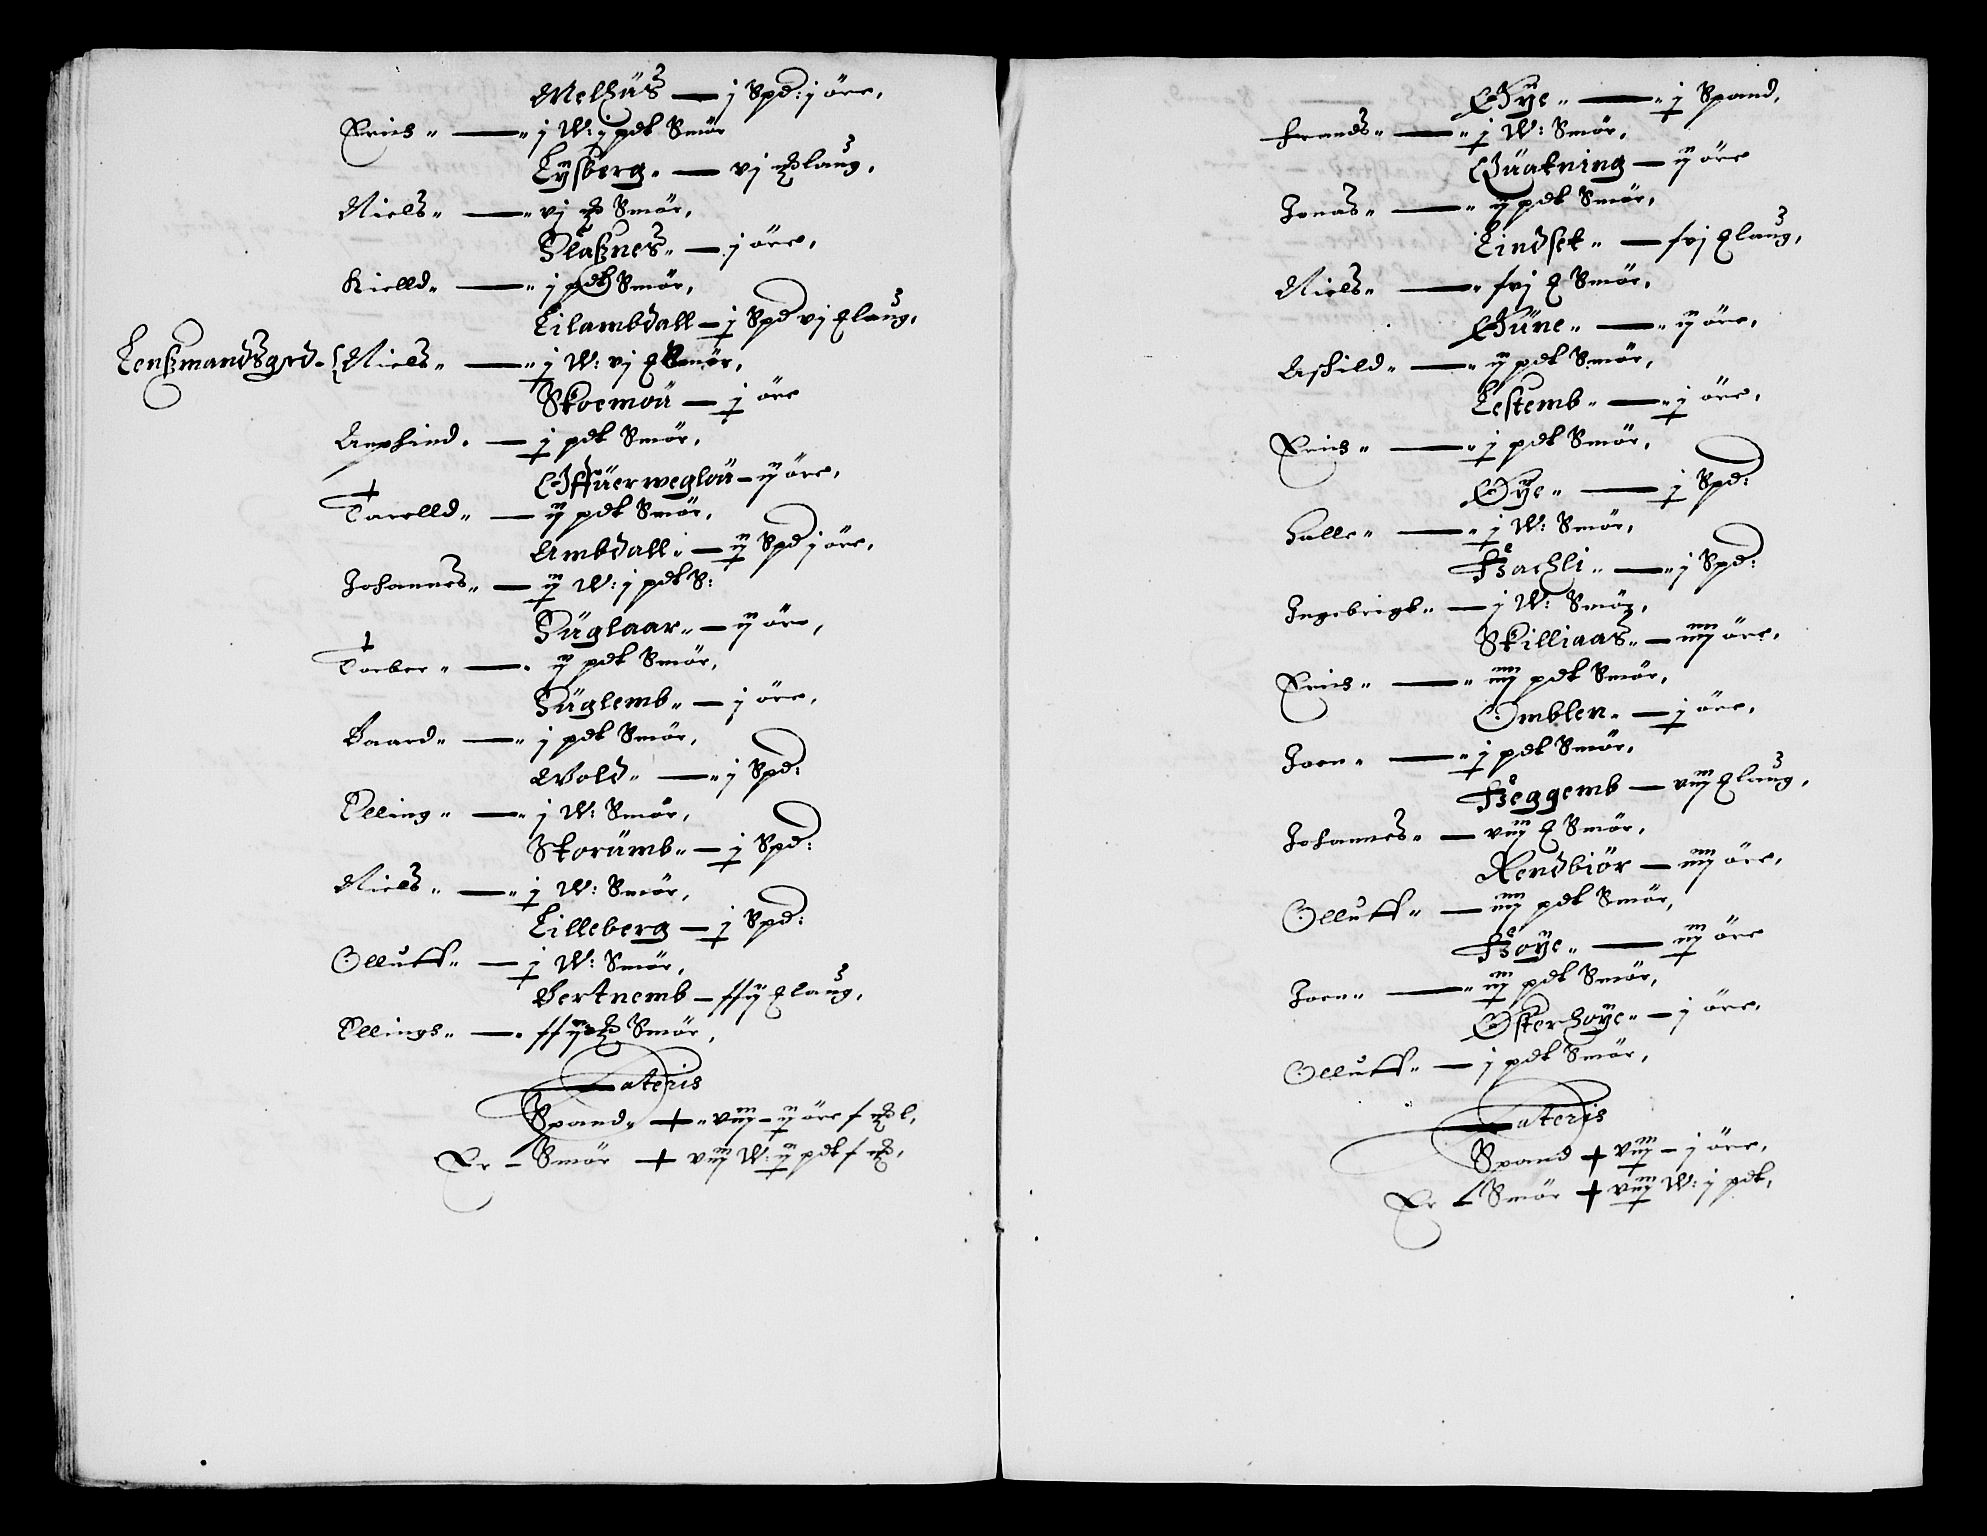 Melhüs — j Spd: j öre,
Erich — j W: j pdt Smör
Lysberg — vj ℔ laug,
Niels — vj ℔ Smör,
Slaßnes — j öre,
Kielld — j pdt Smör,
Lilambdall — j Spd vj ℔ laug,
Lenßmandsgrd Niels — j W: vj ℔ Smör,
Skoemou — j öre
Arnfind — j pdt Smör,
Offüerweglou — ij öre,
Tarelld — ij pdt Smör,
Ambdall — ij Spd j öre,
Johannes — ij W: j pdt S:
Süglaar — ij öre,
Torber — ij pdt Smör,
Süglemb — j öre,
Baard — j pdt Smör,
Wold — j Spd:
Elling — j W: Smör,
Skorümb — j Spd:
Niels — j W: Smör,
Lilleberg — j Spd:
Olluff — j W: Smör,
Bertnemb — laug,
Ellings — Smör,
Lateris
Spand + viij — ij öre l,
Er — Smör + viij W: ij pdt
Øye — j Spand,
Frands — j W: Smör,
Qüatning — ij öre
Jonas — ij pdt Smör,
Lindset — laug,
Niels — Smör,
Hüne — ij öre,
Aschild — ij pdt Smör,
Lestemb — j öre,
Erich — j pdt Smör,
Øye — j Spd:
Halle — j W: Smör,
Bachli — j Spd:
Ingebrigt — j W: Smör,
Skilliaas — iiij öre,
Erich — iiij pdt Smör,
Omblen — j öre,
Joen — j pdt Smör,
Heggemb — viij ℔ laug,
Johannes — viij ℔ Smör,
Rendbiör — iiij öre,
Olluff — iiij pdt Smör,
Höye — iij öre
Joen — iij pdt Smör,
Østerhoye — j öre,
Olluff — j pdt Smör,
Lateris
Spand + viij — j öre,
Er Smör + viij W: j pdt,